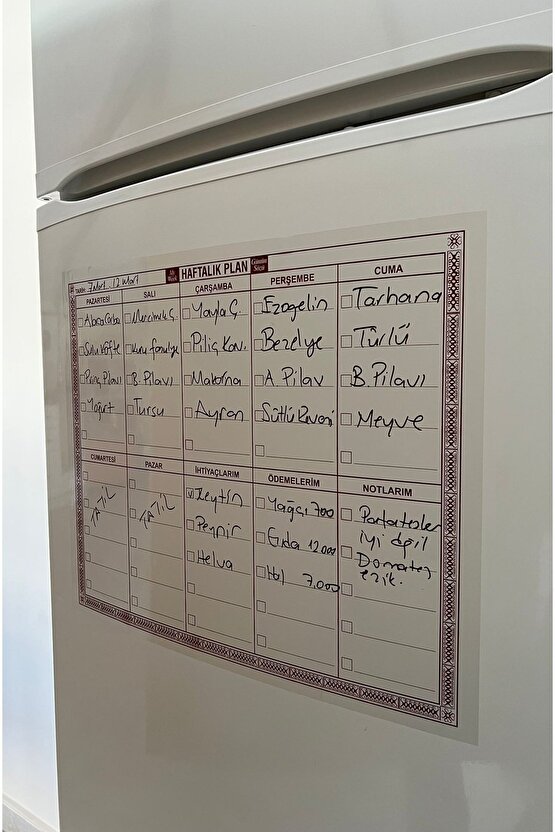 Ah Week HAFTALIK PLAN Günün Sözü
TARİH: 7 Mart 12 Mart
PAZARTESİ
Sulu Köfte
Pirinç Pilavı
Yoğurt
SALI
Mercimek Ç.
Kuru Fasulye
B. Pilavı
Turşu
ÇARŞAMBA
Yayla Ç.
Piliç Kav.
Makarna
Ayran
PERŞEMBE
Ezogelin
Bezelye
A. Pilav
Sütlü
CUMA
Tarhana
Türlü
B. Pilavı
Meyve
CUMARTESİ
TATİL
PAZAR
TATİL
İHTİYAÇLARIM
Zeytin
Peynir
Helva
ÖDEMELERİM
Yağcı 700
Gıda 12.000
Hal 7.000
NOTLARIM
iyi değil
Domates
ezik.